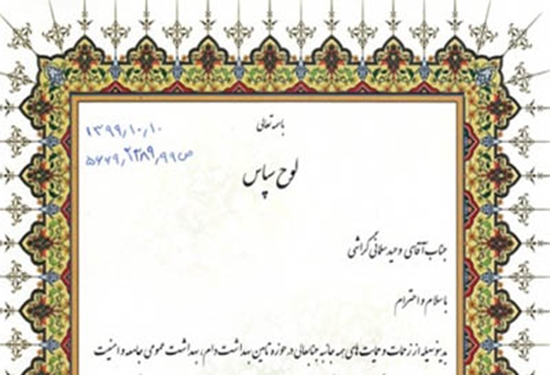 باسمه تعالی
۱۳۹۹٫۱۰٫۱۰
لوح سپاس
جناب آقای وحید سلمانی گراشی
با سلام و احترام
بدینوسیله از زحمات و حمایت های همه جانبه جنابعالی در حوزه تامین بهداشت دام، بهداشت عمومی جامعه و امنیت